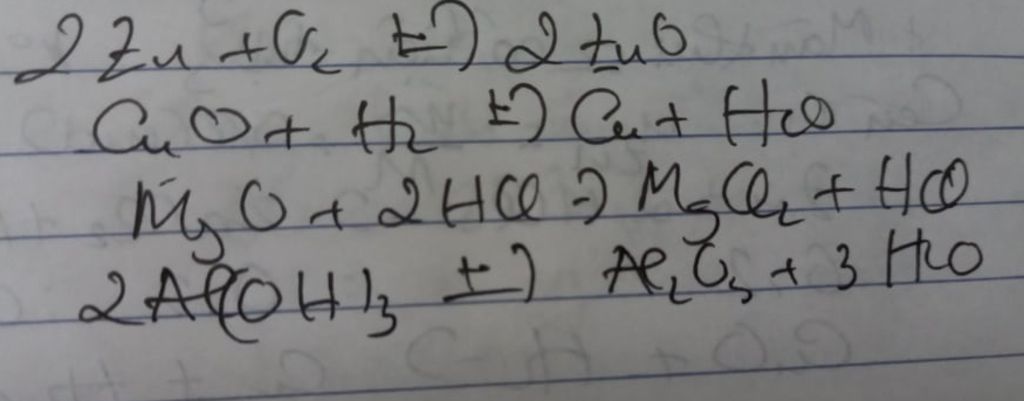 2Zn + O₂ →(t) 2ZnO
CuO + H₂ →(t) Cu + H₂O
MgO + 2HCl → MgCl₂ + H₂O
2Al(OH)₃ →(t) Al₂O₃ + 3H₂O